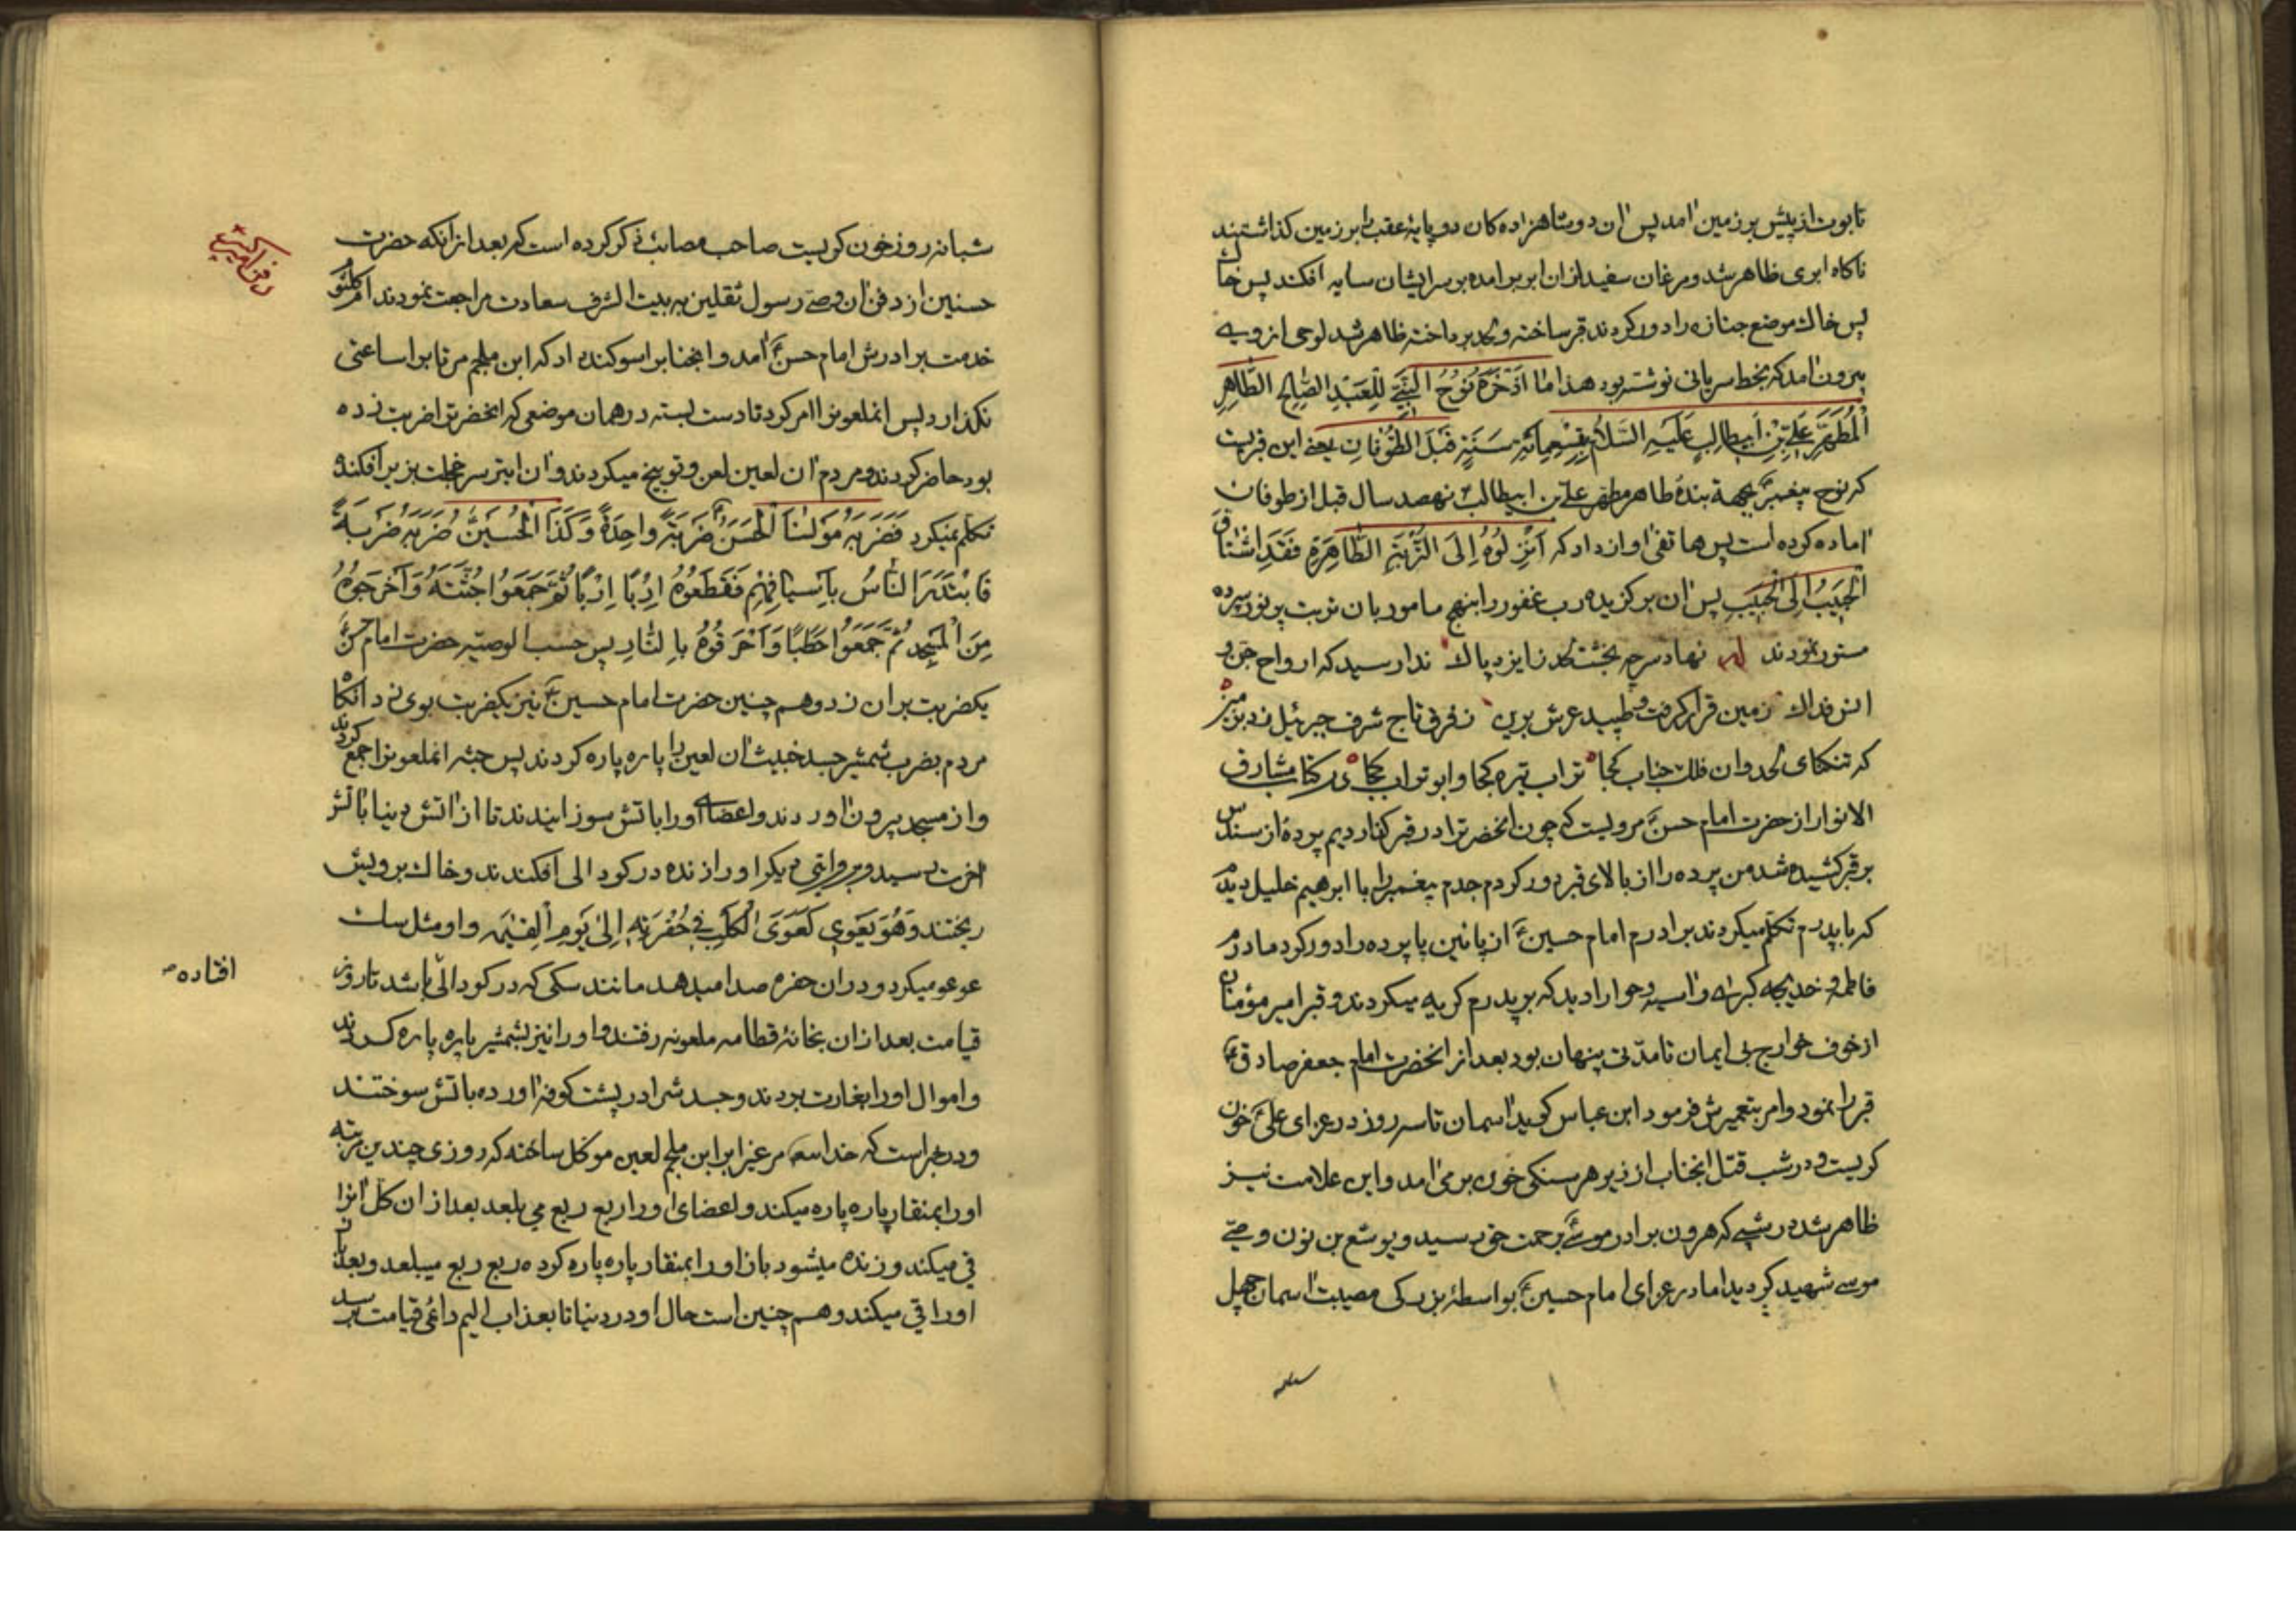 تابوت از پیش بر زمین امد پس ان دو شاهزاده کان دو پایهٔ عقب را بر زمین کذاشتند
ناکاه ابری ظاهر شد و مرغان سفید از ان ابر بر امده بر سر ایشان سایه افکند پس خاک
پس خاک موضع جنازه را دور کردند قبر ساخته و لحد پرداخته ظاهر شد لوحی از وی
بیرون امد که بخط سریانی نوشته بود هذا ما اَدْخَرَهُ نُوحُ النَّبِیِّ لِلْعَبْدِ الصّالِحِ الطّاهِرِ
اَلْمُطَهَّرِ عَلِیِّ بْنِ اَبیطالِبٍ عَلَیْهِ السَّلامُ بِتِسْعِمِائَهِ سَنَةٍ قَبْلَ الطُّوْفانِ یعنی این قبریست
که نوح پیغمبرؑ بجهة بندهٔ طاهر مطهر علی بن ابیطالبؑ نهصد سال قبل از طوفان
اماده کرده است پس هاتفی اواز داد که اَنْزِلُوهُ اِلَی التُّرْبَةِ الطّاهِرَةِ فَقَدِ اشْتاقَ
اَلْحَبیبُ اِلَی الْحَبیبِ پس ان برکزیده رب غفور را بنهج مامور بان تربت پر نور سپرده
مستور نمودند نهاد سر چه بخشت لحد ز ایزد پاک ندا رسید که ارواح جن و
انس فداک زمین قرار کرفت و طپید عرش برین ز فرق تاج شرف جبرئیل زد بزمین
که تنکنای لحد وان فلک جناب کجا تراب تیره کجا و ابو تراب کجا در کتاب مشارق
الانوار از حضرت امام حسنؑ مرویست که چون انحضرترا در قبر کذاردیم پردهٔ از سندس
بر قبر کشیده شد من پرده را از بالای قبر دور کردم جدم پیغمبر را با ابرهیم خلیل دیدم
که با پدرم تکلم میکردند برادرم امام حسینؑ از پائین پا پرده را دور کرد مادرم
فاطمه و خدیجه کبری و اسیه و حوا را دید که بر پدرم کریه میکردند و قبر امیر مؤمنان
از خوف خوارج بی ایمان تا مدّتی پنهان بود بعد از انحضرت امام جعفر صادقؑ
قبر را نمود و امر بتعمیرش فرمود ابن عباس کوید اسمان تا سه روز در عزای علیؑ خون
کریست و در شب قتل انجناب از زیر هر سنکی خون بر می امد و این علامت نیز
ظاهر شد در شبی که هرون برادر موسیؑ برحمت حق رسید و یوشع بن نون وصیّ
موسی شهید کردید اما در عزای امام حسینؑ بواسطهٔ بزرکی مصیبت اسمان چهل
شبانه روز خون کریست صاحب مصائب ذکر کرده است که بعد از انکه حضرت
حسنین از دفن ان وصیّ رسول ثقلین به بیت الشرف سعادت مراجعت نمودند ام کلثوم
خدمت برادرش امام حسنؑ امد و انجنابرا سوکند داد که ابن ملجم مرتابرا ساعتی
نکذارد پس انملعونرا امر کرد تا دست بسته در همان موضعی که انحضرترا ضربت زده
بود حاضر کردند و مردم ان لعین لعن و توبیخ میکردند و ان ابتر سر خجلت بزیر افکنده
تکلم نمیکرد فَضَرَبَهُ مَوْلٰنَا الْحَسَنُؑ ضَرْبَةً واحِدَةً وَ کَذَا الْحُسَیْنُؑ ضَرَبَهُ ضَرْبَةً
فَابْتَدَرَ النّاسُ بِاَسْیافِهِمْ فَقَطَعُوهُ اِرْبًا اِرْبًا ثُمَّ جَمَعُوا جُثَّتَهُ وَ اَخْرَجُوهُ
مِنَ الْمَسْجِدِ ثُمَّ جَمَعُوا حَطَبًا وَ اَحْرَقُوهُ بِالنّارِ پس حسب الوصیّه حضرت امام حسنؑ
یکضربت بر ان زد و هم چنین حضرت امام حسینؑ نیز یکضربت بوی زد انکاه
مردم بضرب شمشیر جسد خبیث ان لعین را پاره پاره کردند پس جثه انملعونرا جمع کردند
و از مسجد بیرون اوردند و اعضاء اورا باتش سوزانیدند تا از اتش دنیا باتش
اخرت رسید و بروایتی دیکر اورا زنده در کودالی افکندند و خاک برویش
ریختند وَ هُوَ یَعْوِی کَعَوَی الْکَلْبِ فی حُفْرَتِهِ اِلیٰ یَوْمِ الْقِیٰمَهِ و او مثل سک
عوعو میکرد و در ان حفره صدا میدهد مانند سکی که در کودالی باشد تا روز
افتاده
قیامت بعد از ان بخانهٔ قطامه ملعونه رفتند و اورا نیز بشمشیر پاره پاره کردند
و اموال اورا بغارت بردند و جسدش را در پشت کوفه اورده باتش سوختند
و در خبر است که خدا مرغیرا بر ابن ملجم لعین موکل ساخته که روزی چندین مرتبه
اورا بمنقار پاره پاره میکند و اعضای اورا ربع ربع می بلعد بعد از ان کل انرا
قی میکند و زنده میشود باز اورا بمنقار پاره پاره کرده ربع ربع میبلعد و بعد از ان
اورا قی میکند و هم چنین است حال او در دنیا تا بعذاب الیم دائمی قیامت برسد